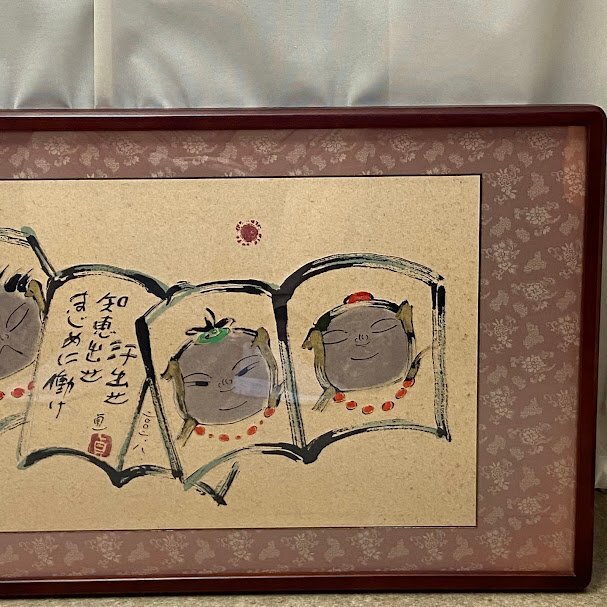 汗出せ
知恵出せ
まじめに働け
貞